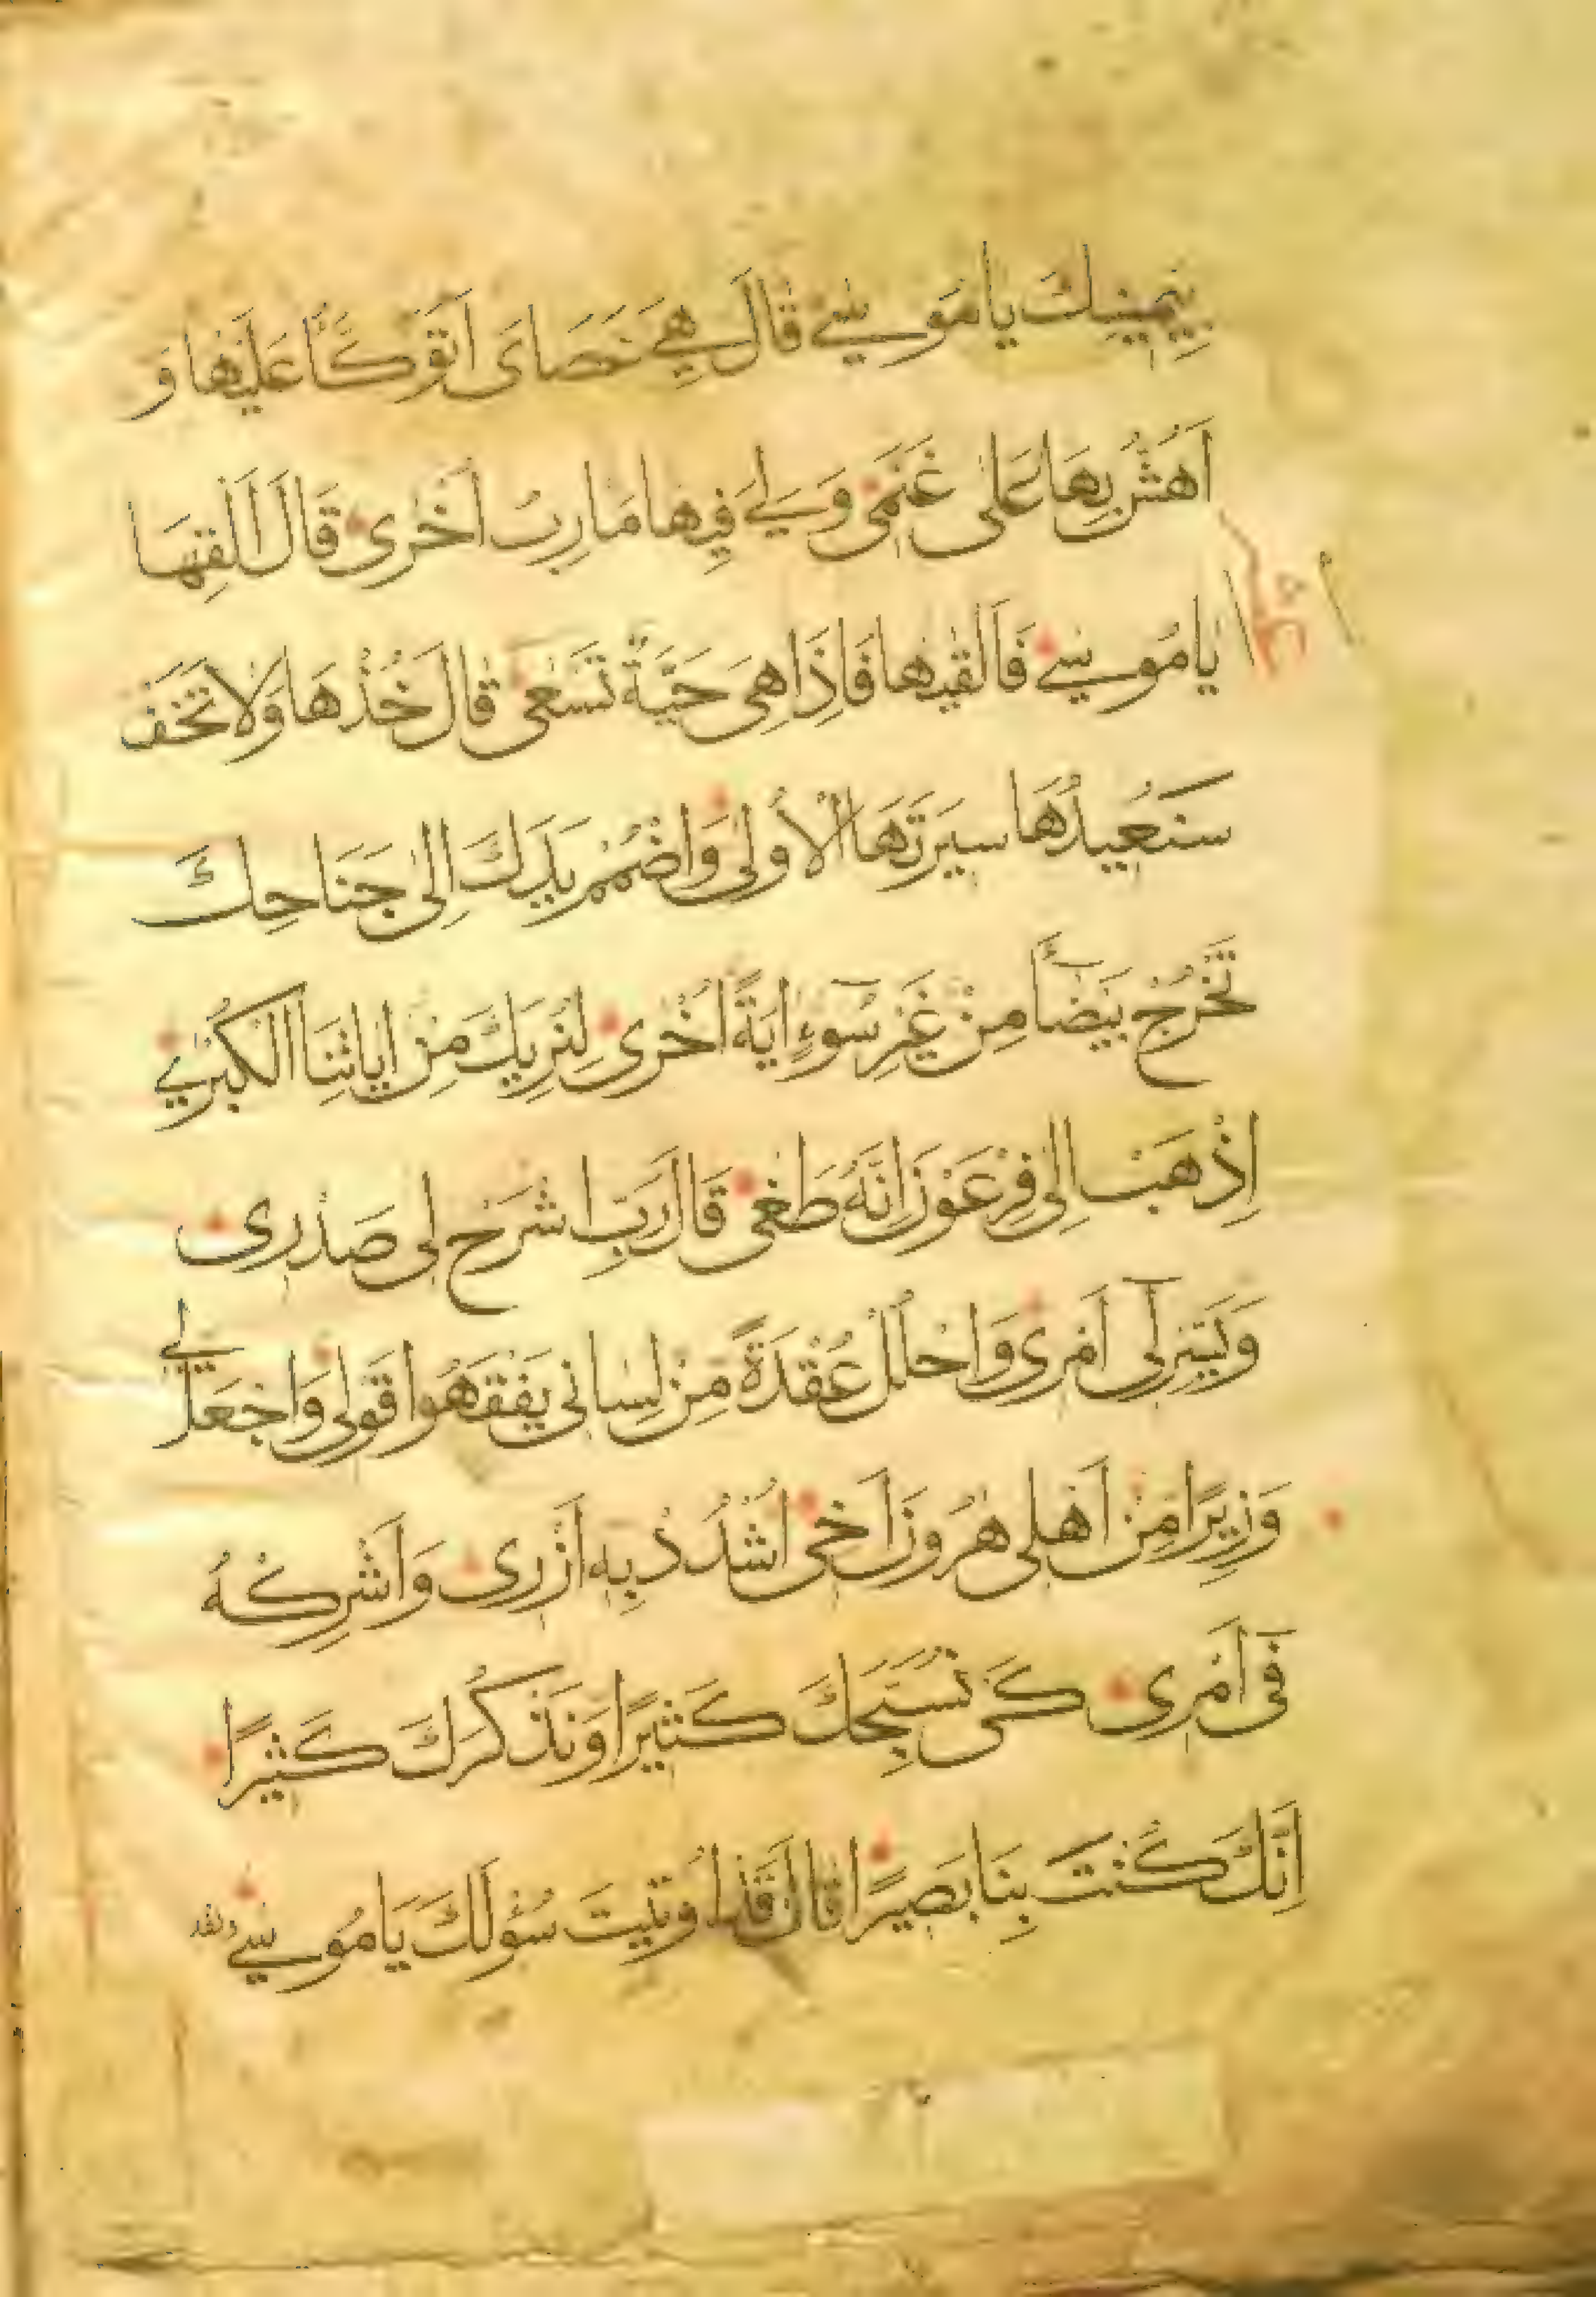 بِيَمِينِكَ يَا مُوسٰى قَالَ هِيَ عَصَاىَ اَتَوَكَّأُ عَلَيْهَا وَ
اَهُشُّ بِهَا عَلٰى غَنَمِى وَلِيَ فِيهَا مَارِبُ اُخْرٰى قَالَ اَلْقِهَا
يَا مُوسٰى فَاَلْقٰيهَا فَاِذَا هِىَ حَيَّةٌ تَسْعٰى قَالَ خُذْهَا وَلَا تَخَفْ
سَنُعِيدُهَا سِيرَتَهَا الْاُولٰى وَاضْمُمْ يَدَكَ اِلٰى جَنَاحِكَ
تَخْرُجْ بَيْضَآءَ مِنْ غَيْرِ سُوٓءٍ اٰيَةً اُخْرٰى لِنُرِيَكَ مِنْ اٰيَاتِنَا الْكُبْرٰى
اِذْهَبْ اِلٰى فِرْعَوْنَ اِنَّهُ طَغٰى قَالَ رَبِّ اشْرَحْ لِى صَدْرِى
وَيَسِّرْ لِىٓ اَمْرِى وَاحْلُلْ عُقْدَةً مِنْ لِسَانِى يَفْقَهُوا قَوْلِى وَاجْعَلْ لِى
وَزِيرًا مِنْ اَهْلِى هٰرُونَ اَخِى اُشْدُدْ بِهِ اَزْرِى وَاَشْرِكْهُ
فِى اَمْرِى كَىْ نُسَبِّحَكَ كَثِيرًا وَنَذْكُرَكَ كَثِيرًا
اِنَّكَ كُنْتَ بِنَا بَصِيرًا قَالَ قَدْ اُوتِيتَ سُؤْلَكَ يَا مُوسٰى ولقد